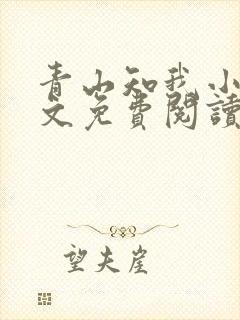 青山知我小
文免費閱讀
望夫崖